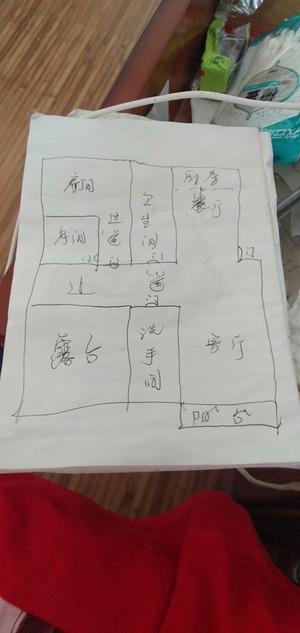 房间
房间
过道
门
卫生间
门
厨房
餐厅
门
过道
门
露台
洗手间
客厅
阳台